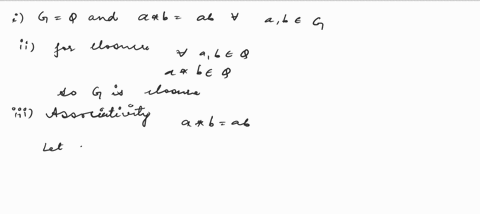 i) G = Q and a * b = ab ∀ a, b ∈ G
ii) for closure ∀ a, b ∈ Q
a * b ∈ Q
so G is closure
iii) Associtivity a * b = ab
Let